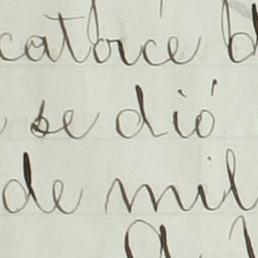 catorce
se dió
de mil